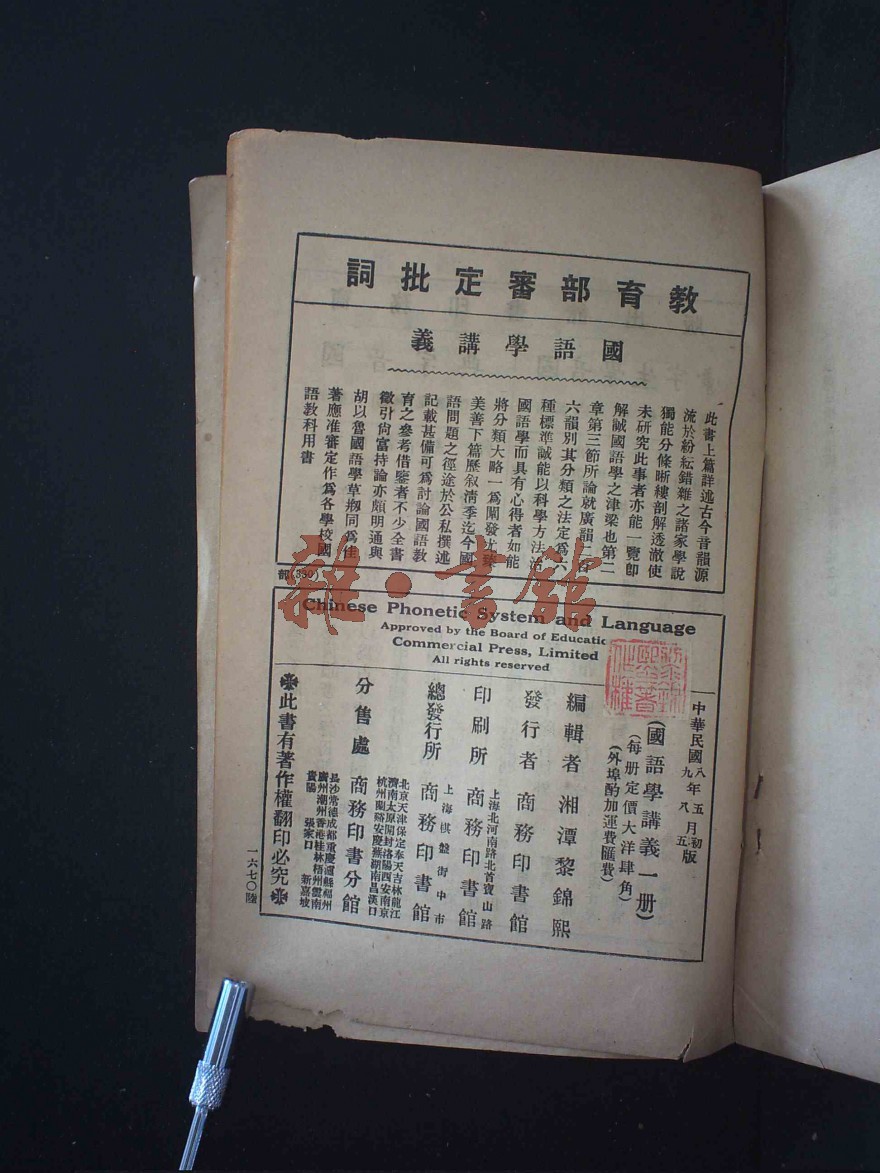 教育部審定批詞
國語學講義
此書上篇詳述古今音韻源
流於紛紜錯雜之諸家學說
獨能分條晰縷剖解透澈使
未研究此事者亦能一覽卽
解誠國語學之津梁也第二
章第三節所論就廣韻二百
六韻別其分類之法定為六
種標準誠能以科學方法治
國語學而具有心得者如能
將分類大略一爲闡發尤臻
美善下篇歷叙淸季迄今國
語問題之徑途於公私撰述
記載甚備可爲討論國語教
育之參考借鑒者不少全書
徵引尙富持論亦頗明通與
胡以魯國語學草刱同爲佳
著應准審定作爲各學校國
語教科用書
部(330)
雜·書館
Chinese Phonetic System and Language
Approved by the Board of Educatio
Commercial Press, Limited
All rights reserved
中華民國八年五月初版
九年八月五版
(國語學講義一册)
(每册定價大洋肆角)
(外埠酌加運費匯費)
編輯者 湘潭黎錦熙
發行者 商務印書館
上海北河南路北首寶山路
印刷所 商務印書館
上海棋盤街中市
總發行所 商務印書館
分售處 商務印書分館
北京天津保定奉天吉林龍江
濟南太原開封洛陽西安南京
杭州蘭谿安慶蕪湖南昌漢口
長沙常德成都重慶瀘縣福州
廣州潮州香港桂林梧州雲南
貴陽 張家口 新嘉坡
此書有著作權翻印必究
一六七〇陸